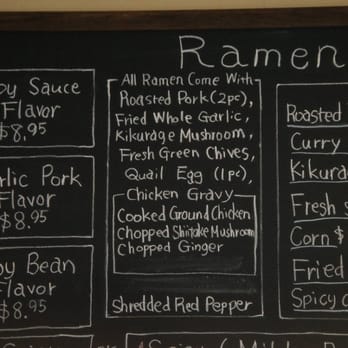 Ramen
Sauce
Flavor
$8.95
Pork
Flavor
$8.95
Bean
Flavor
$8.95
All Ramen Come With
Roasted Pork (2pc),
Fried Whole Garlic,
Kikurage Mushroom,
Fresh Green Chives,
Quail Egg (1pc),
Chicken Gravy
Cooked Ground Chicken
Chopped Shiitake Mushroom
Chopped Ginger
Shredded Red Pepper
Roasted
Curry
Fresh
Corn $
Fried
Spicy